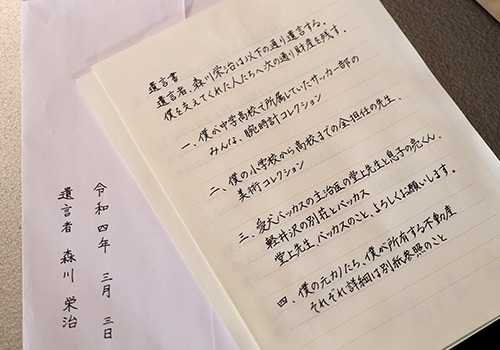 遺言書
遺言者、森川栄治は以下の通り遺言する。
僕を支えてくれた人たちへ次の通り財産を残す。
一、僕が中学高校で所属していたサッカー部の
みんな、腕時計コレクション
二、僕の小学校から高校までの全担任の先生、
美術コレクション
三、愛犬バッカスの主治医の堂上先生と息子の亮くん、
軽井沢の別荘とバッカス
堂上先生、バッカスのこと、よろしくお願いします。
四、僕の元カノたち、僕が所有する不動産
それぞれ詳細は別紙参照のこと
令和四年 三月 三日
遺言者 森川 栄治